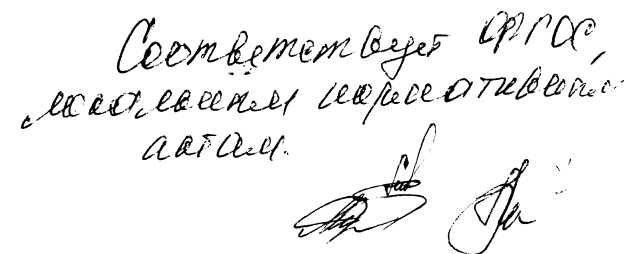 Соответствует ФГОС,
локальным нормативным
актам.